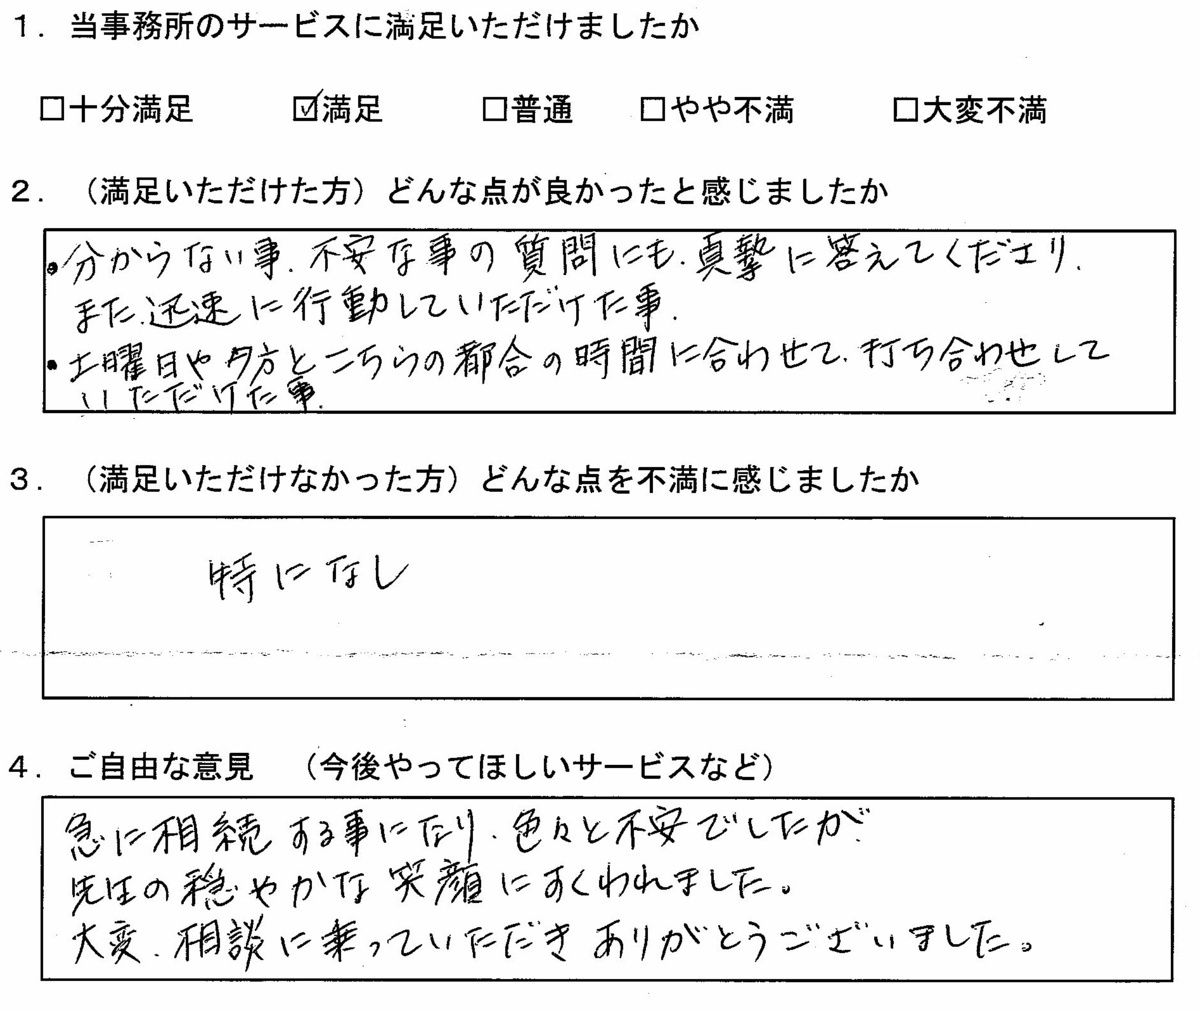 1．当事務所のサービスに満足いただけましたか
□十分満足　☑満足　□普通　□やや不満　□大変不満
2．（満足いただけた方）どんな点が良かったと感じましたか
・分からない事、不安な事の質問にも、真摯に答えてくださり、
また、迅速に行動していただけた事、
・土曜日や夕方とこちらの都合の時間に合わせて、打ち合わせして
いただけた事、
3．（満足いただけなかった方）どんな点を不満に感じましたか
特になし
4．ご自由な意見　（今後やってほしいサービスなど）
急に相続する事になり、色々と不安でしたが、
先生の穏やかな笑顔にすくわれました。
大変、相談に乗っていただきありがとうございました。